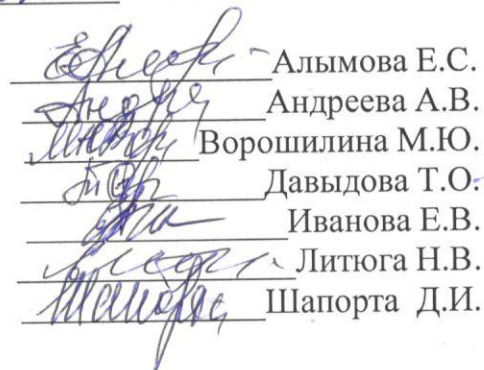 Алымова Е.С.
Андреева А.В.
Ворошилина М.Ю.
Давыдова Т.О.
Иванова Е.В.
Литюга Н.В.
Шапорта Д.И.